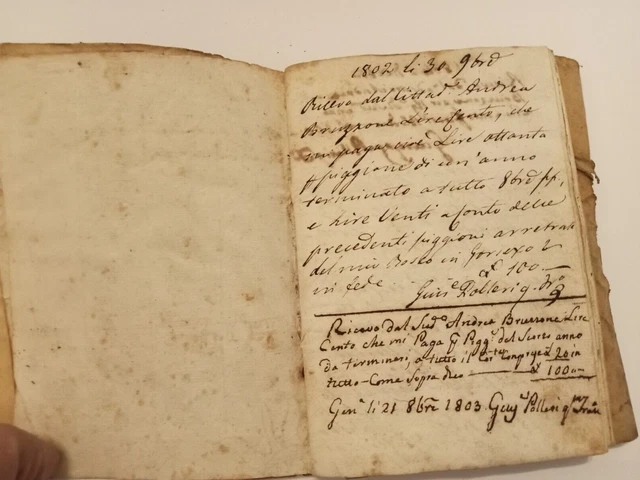 1802 li 30 9bre
Ricevo dal Cittad. Andrea
Bruzzone Lire Cento, che
mi paga cioè Lire ottanta
piggione di un'anno
terminato a tutto 8bre pp,
e Lire Venti a Conto delle
precedenti piggioni arretrate
del mio Bosco in
in fede 100
Ricevo dal Sud.o Andrea Bruzzone Lire
Cento che mi Paga Pigg.e del Scorso anno
da terminarsi, a tutto il 20 in
tutto Come Sopra dico 100
Gen.a li 21 8bre 1803